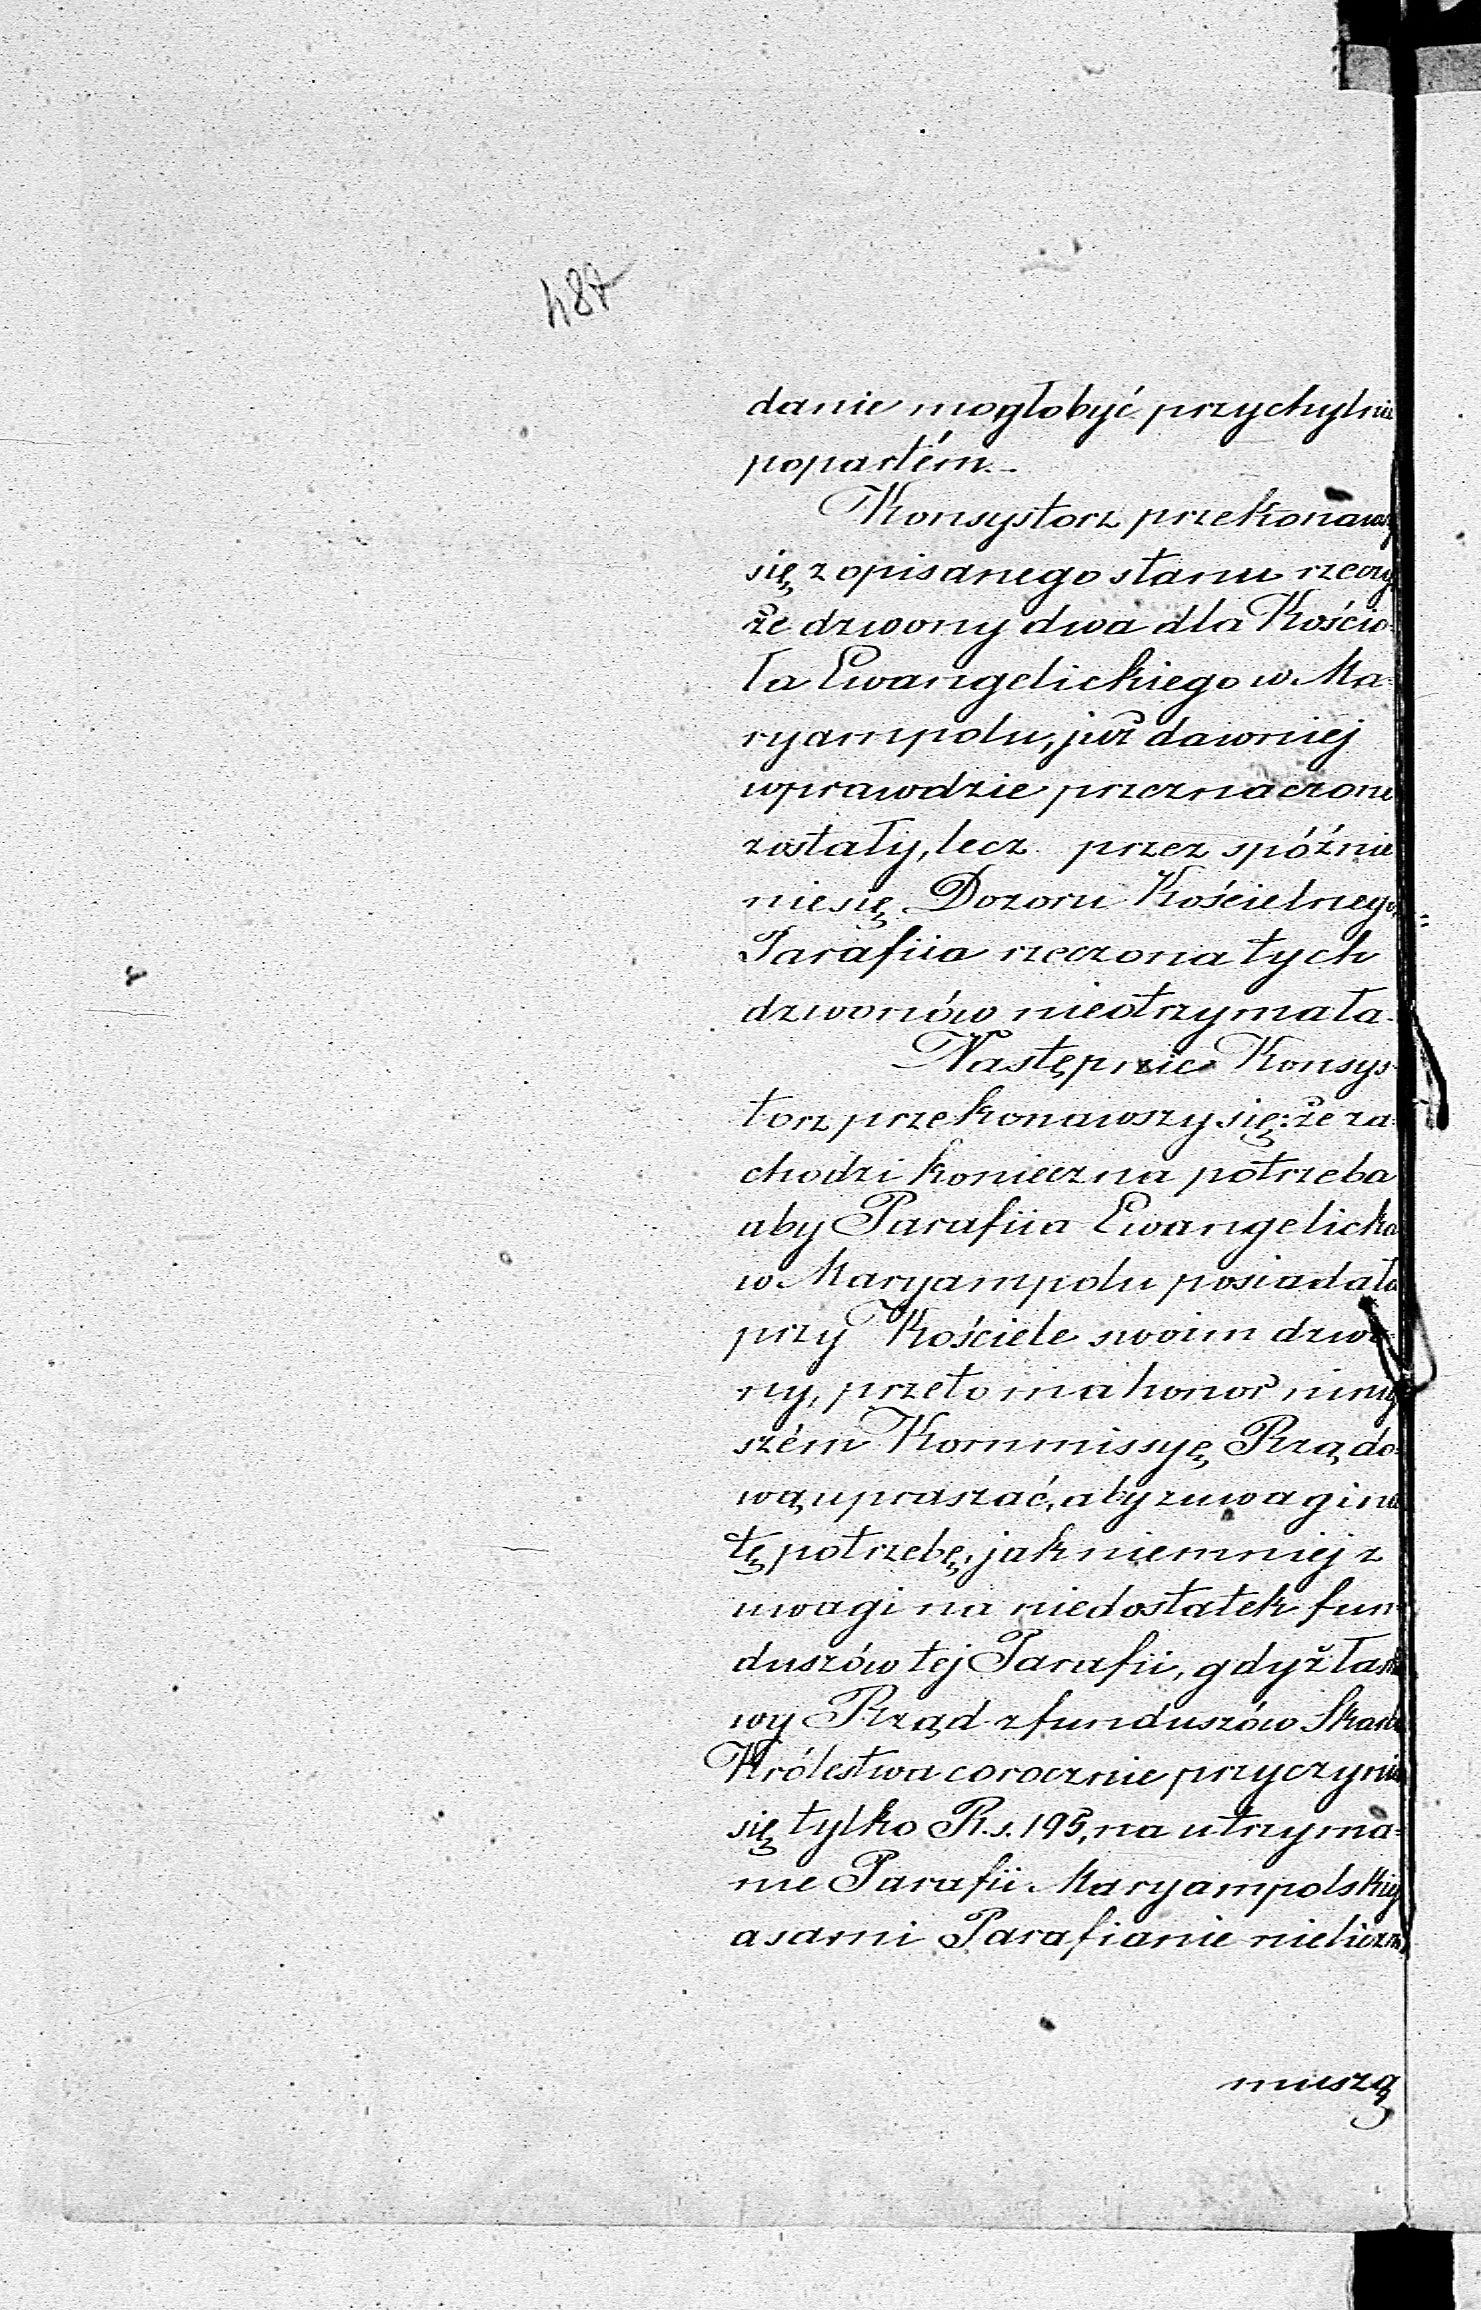 487
danie mogłobyć przychylnie
popartém.
Konsystorz przekonawszy
się z opisanego stanu rzeczy
że dzwony dwa dla Kościo-
ła Ewangelickiego w Ma-
ryampolu, już dawniej
wprawdzie przeznaczone
zostały, lecz przez spóźnie
nie się Dozoru Kościelnego
Parafiia rzeczona tych
dzwonów nieotrzymała.
Następnie Konsys-
torz przekonawszy się: że za-
chodzi konieczna potrzeba
aby Parafiia Ewangelicka
w Maryampolu posiadała
przy Kościele swoim dzwo-
ny, przeto ma honor niniej
szém Kommissyę Rządo-
wą upraszać, aby z uwagi na
tę potrzebę, jak niemniej z
uwagi na niedostatek fun-
duszów tej Parafii, gdyż
wy Rząd z funduszów Skarbu
Królestwa corocznie przyczynia
się tylko R.s. 195, na utrzyma-
nie Parafii Maryampolskiej
a sami Parafianie nieliczni
muszą